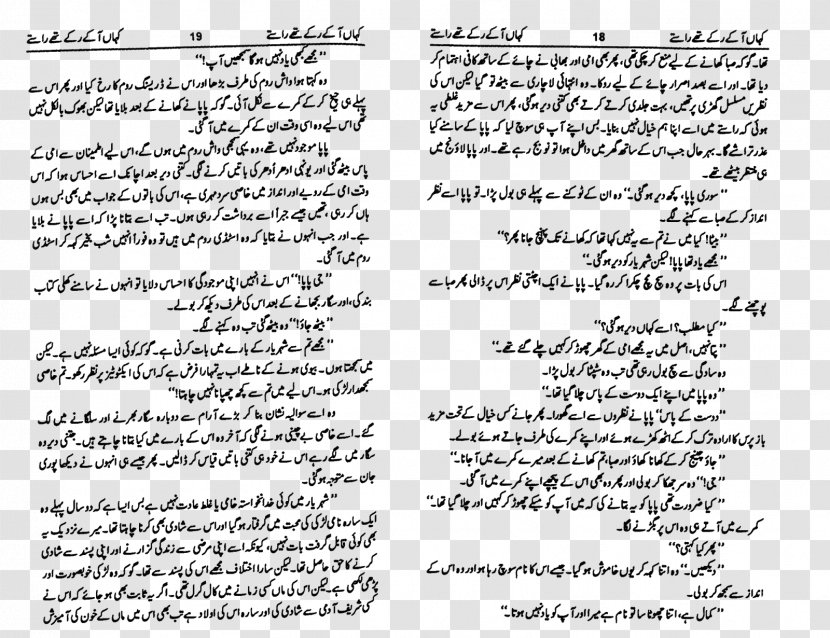 کہاں آ کے رکے تھے راستے 18 کہاں آ کے رکے تھے راستے
تھا۔ گو کہ صبا کھانے کے لیے منع کر چکی تھی، پھر بھی امی اور بھابی نے چائے کے ساتھ کافی اہتمام کر
دیا تھا۔ اور اسے بصد اصرار چائے کے لیے روکا۔ وہ انتہائی لاچاری سے بیٹھ تو گیا لیکن اس کی
نظریں مسلسل گھڑی پر تھیں، بہت جلدی کرتے کرتے بھی کتنی دیر ہو گئی، پھر اس سے مزید غلطی یہ
ہوئی کہ راستے میں اسے اپنا ہم خیال نہیں بنایا۔ بس اپنے آپ ہی سوچ لیا کہ پاپا کے سامنے کیا
عذر تراشے گا۔ بہرحال جب اس کے ساتھ گھر میں داخل ہوا تو نو بج رہے تھے۔ اور پاپا لاؤنج میں
ہی منتظر بیٹھے تھے۔
’’سوری پاپا، کچھ دیر ہو گئی۔‘‘ وہ ان کے ٹوکنے سے پہلے ہی بول پڑا۔ تو پاپا اسے نظر
انداز کر کے صبا سے کہنے لگے۔
’’بیٹا! کیا میں نے تم سے یہ نہیں کہا تھا کہ کھانے تک پہنچ جانا پھر؟‘‘
’’مجھے یاد تھا پاپا! لیکن شہریار کو دیر ہو گئی۔‘‘
اس کی بات پر وہ سچ مچ چکرا کر رہ گیا۔ پاپا نے ایک اچٹتی نظر اس پر ڈالی پھر صبا سے
پوچھنے لگے۔
’’کیا مطلب؟ اسے کہاں دیر ہو گئی؟‘‘
’’پتا نہیں، اصل میں یہ مجھے امی کے گھر چھوڑ کر کہیں چلے گئے تھے۔‘‘
وہ سادگی سے سچ بول رہی تھی تب وہ شپٹا کر بول پڑا۔
’’وہ پاپا میں اپنے ایک دوست کے پاس چلا گیا تھا۔‘‘
’’دوست کے پاس‘‘ پاپا نے نظروں سے اسے گھورا۔ پھر جانے کس خیال کے تحت مزید
باز پرس کا ارادہ ترک کر کے اٹھ کھڑے ہوئے اور اپنے کمرے کی طرف جاتے ہوئے بولے۔
’’جاؤ چینج کر کے کھانا کھاؤ اور صبا، تم کھانے کے بعد میرے کمرے میں آ جانا۔‘‘
’’جی!‘‘ وہ سر جھکا کر بولی اور پھر وہ بھی اس کے پیچھے اپنے کمرے میں آ گئی۔
’’کیا ضرورت تھی پاپا کو یہ بتانے کی کہ میں آپ کو میکے چھوڑ کر کہیں اور چلا گیا تھا۔‘‘
کمرے میں آتے ہی وہ اس پر بگڑنے لگا۔
’’پھر کیا کہتی؟‘‘
’’دیکھیں۔‘‘ وہ اتنا کہہ کر یوں خاموش ہو گیا۔ جیسے اس کا نام سوچ رہا ہو اور وہ اس کے
انداز سے سمجھ کر بولی۔
’’کمال ہے، اتنا چھوٹا سا تو نام ہے میرا اور آپ کو یاد نہیں ہوتا۔‘‘
کہاں آ کے رکے تھے راستے 19 کہاں آ کے رکے تھے راستے
’’مجھے کبھی یاد نہیں ہوگا سمجھیں آپ!‘‘
وہ کہتا ہوا واش روم کی طرف بڑھا اور اس نے ڈریسنگ روم کا رخ کیا اور پھر اس سے
پہلے ہی چینج کر کے کمرے سے نکل آئی۔ گو کہ پاپا نے کھانے کے بعد بلایا تھا لیکن بھوک بالکل نہیں
تھی اس لیے وہ اسی وقت ان کے کمرے میں آ گئی۔
پاپا موجود نہیں تھے، وہ یہی سمجھی واش روم میں ہوں گے، اس لیے اطمینان سے امی کے
پاس بیٹھ گئی اور یونہی ادھر اُدھر کی باتیں کرنے لگی۔ کتنی دیر بعد اچانک اسے احساس ہوا کہ اس
وقت امی کے رویے اور انداز میں خاصی سرد مہری ہے، اس کی باتوں کے جواب میں بھی بس ہوں
ہاں کر رہی تھیں جیسے جبراً اسے برداشت کر رہی ہوں۔ تب اسے بتانا پڑا کہ اسے پاپا نے بلایا
ہے۔ اور جب انہوں نے بتایا کہ وہ اسٹڈی روم میں ہیں تو وہ فوراً انہیں شب بخیر کہہ کر اسٹڈی
روم میں آ گئی۔
’’جی پاپا!‘‘ اس نے انہیں اپنی موجودگی کا احساس دلایا تو انہوں نے سامنے کھلی کتاب
بند کی، اور سگار بجھانے کے بعد اس کی طرف دیکھ کر بولے۔
’’بیٹھ جاؤ!‘‘ وہ بیٹھ گئی تب وہ کہنے لگے۔
’’مجھے تم سے شہریار کے بارے میں بات کرنی ہے۔ گو کہ کوئی ایسا مسئلہ نہیں ہے۔ لیکن
میں سمجھتا ہوں۔ بیوی ہونے کے ناطے اب یہ تمہارا فرض ہے کہ اس کی ایکٹوٹیز پر نظر رکھو۔ تم خاصی
سمجھدار لڑکی ہو۔ اس لیے میں تم سے کچھ چھپانا نہیں چاہتا!‘‘
وہ اسے سوالیہ نشان بنا کر بڑے آرام سے دوبارہ سگار بھرنے اور سلگانے میں لگ
گئے۔ اسے خاصی بے چینی ہونے لگی کہ آخر وہ اس کے بارے میں کیا بتانا چاہتے ہیں۔ جتنی دیر وہ
سگار میں لگے رہے اس نے خود ہی کتنی باتیں قیاس کر ڈالیں۔ پھر جیسے ہی انہوں نے دیکھا پوری
جان سے متوجہ ہو گئی۔
’’شہریار میں کوئی خدانخواستہ خامی یا غلط عادت نہیں ہے بس ایسا ہے کہ دو سال پہلے وہ
ایک سارہ نامی لڑکی کی محبت میں گرفتار ہو گیا اور اس سے شادی بھی کرنا چاہتا تھا۔ میرے نزدیک یہ
بھی کوئی قابل گرفت بات نہیں، کیونکہ اسے اپنی مرضی سے زندگی گزارنے اور اپنی پسند سے شادی
کرنے کا حق حاصل تھا۔ لیکن سارا اختلاف مجھے اس کی پسند سے تھا۔ گو کہ وہ لڑکی خوبصورت اور
پڑھی لکھی ہے۔ لیکن اس کی ماں کسی زمانے میں کال گرل تھی۔ اگر یہ ثابت بھی ہو جائے کہ اس نے
کسی شریف آدمی سے شادی کی اور سارہ اس کی اولاد ہے تب بھی اس میں ماں کے خون کی آمیزش